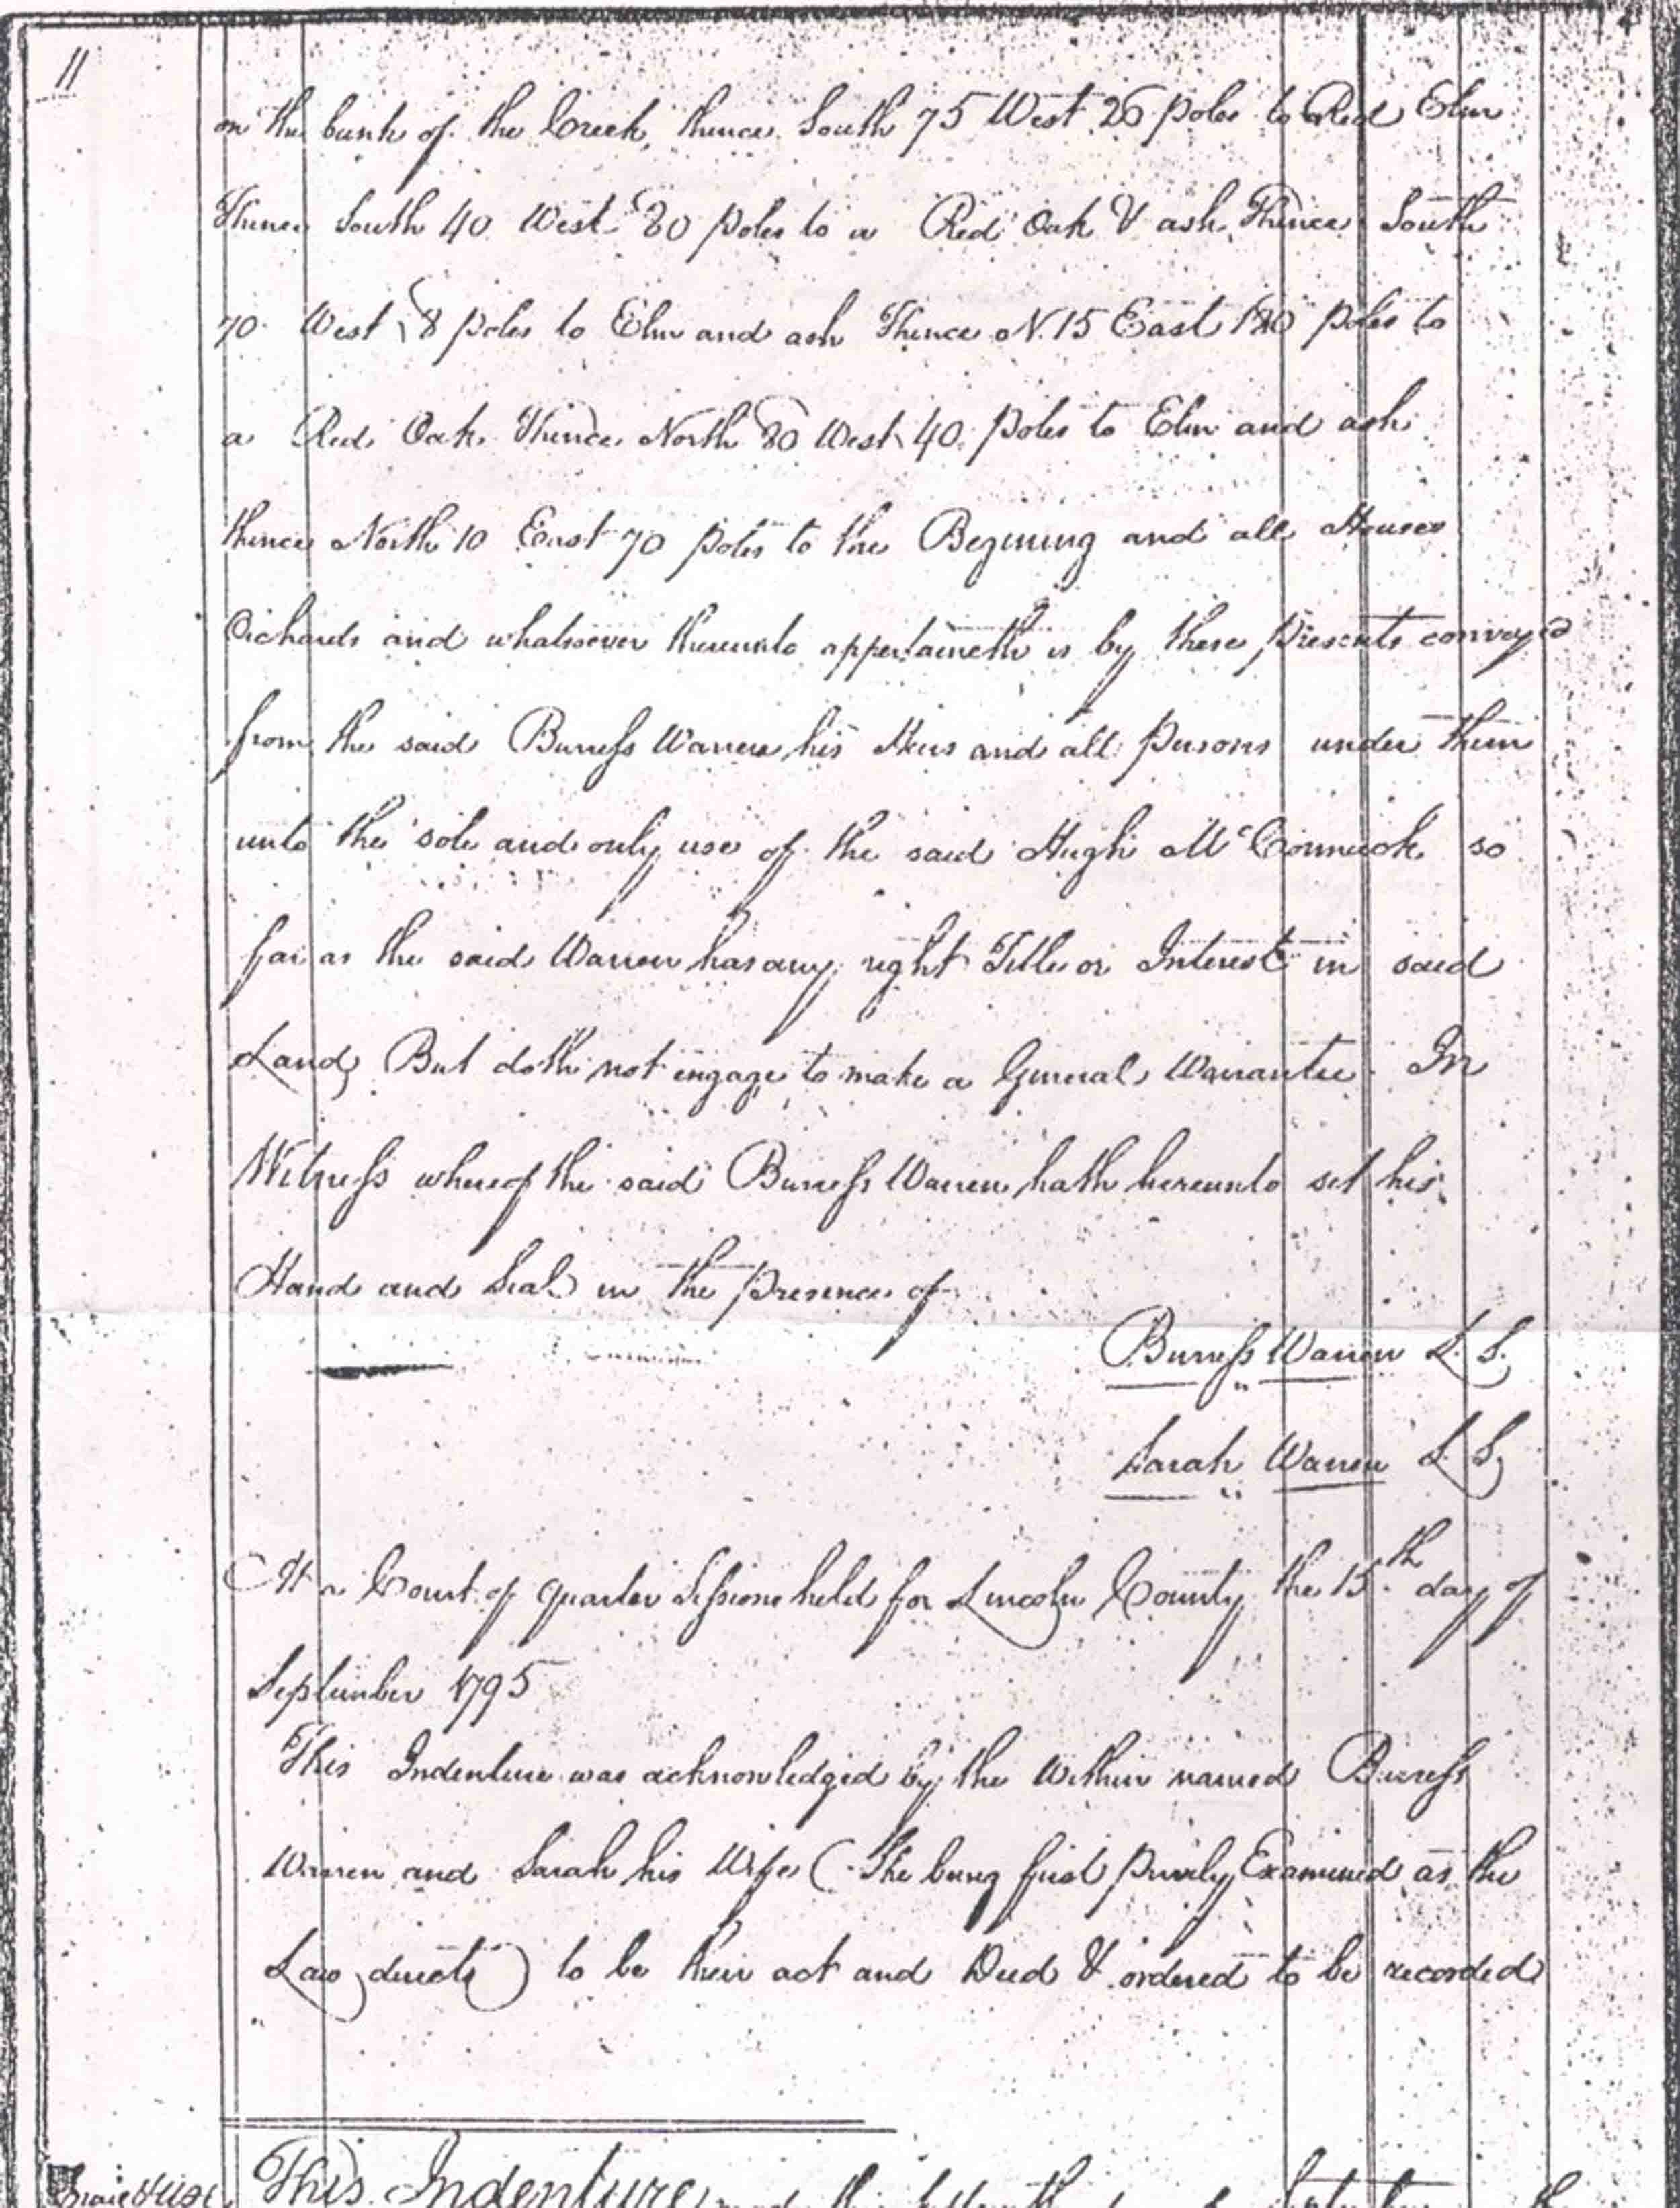 11
on the bank of the Creek, thence South 75 West 26 poles to Red Elm
Thence South 40 West 80 poles to a Red Oak & ash Thence South
70 West 8 poles to Elm and ash Thence N. 15 East 180 poles to
a Red Oak Thence North 80 West 40 poles to Elm and ash
thence North 10 East 70 poles to the Begining and all Houses
Orchards and whatsoever thereunto appertaineth is by these presents convey'd
from the said Burress Warren his Heirs and all persons under them
unto the sole and only use of the said Hugh McCormick so
far as the said Warren has any right Title or Interest in said
Land, But doth not engage to make a General Warrantee In
Witness whereof the said Burress Warren hath hereunto set his
Hand and Seal in the presence of
Burress Warren L. S.
Sarah Warren L. S.
At a Court of quarter Sessions held for Lincoln County the 15th day of
September 1795
This Indenture was acknowledged by the Within named Burress
Warren and Sarah his Wife (She being first privily Examined as the
Law directs) to be their act and Deed & ordered to be recorded
This Indenture made this